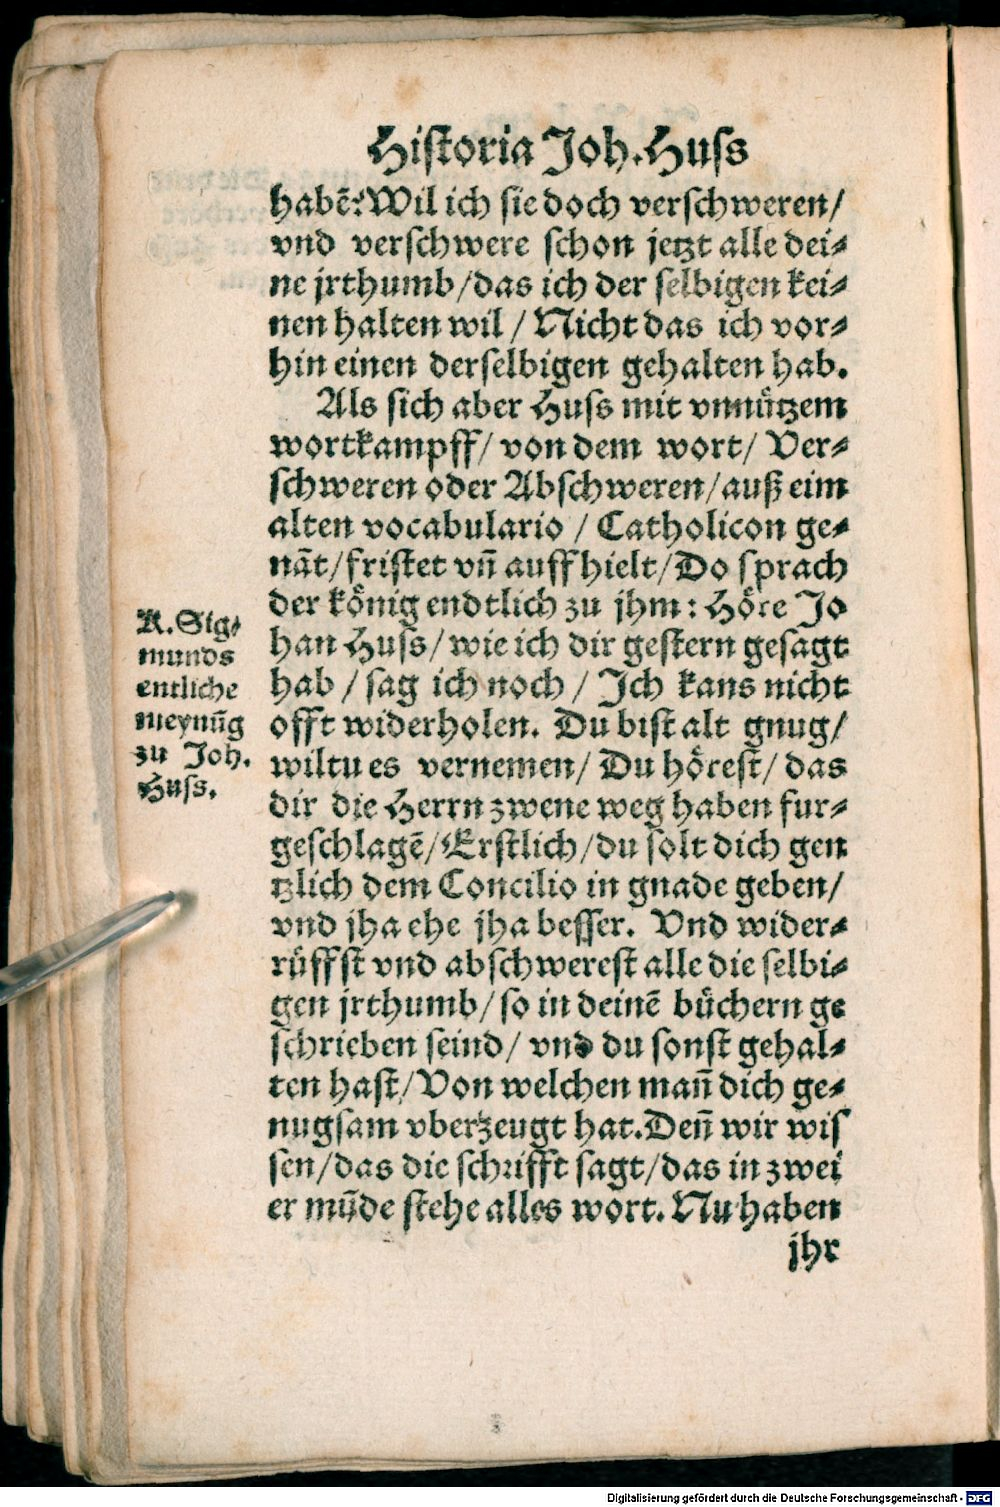 Historia Joh. Huss
habẽ? Wil ich sie doch verschweren/
vnd verschwere schon jetzt alle dei-
ne jrthumb/das ich der selbigen kei-
nen halten wil / Nicht das ich vor-
hin einen derselbigen gehalten hab.
Als sich aber Huss mit vnnützem
wortkampff/ von dem wort/ Ver-
schweren oder Abschweren/auß eim
alten vocabulario / Catholicon ge-
nãt/fristet vñ auffhielt/Do sprach
der könig endtlich zu jhm: Höre Jo
han Huss/ wie ich dir gestern gesagt
hab / sag ich noch / Jch kans nicht
offt widerholen. Du bist alt gnug/
wiltu es vernemen/ Du hörest/ das
dir die Herrn zwene weg haben fur-
geschlagẽ/Erstlich/du solt dich gen
tzlich dem Concilio in gnade geben/
vnd jha ehe jha besser. Vnd wider-
rüffst vnd abschwerest alle die selbi-
gen jrthumb/ so in deinẽ büchern ge
schrieben seind/ vnd du sonst gehal-
ten hast/Von welchen mañ dich ge-
nugsam vberzeugt hat. Deñ wir wis
sen/das die schrifft sagt/das in zwei
er mũde stehe alles wort. Nu haben
jhr
K. Sig-
munds
entliche
meynũg
zu Joh.
Huss.
Digitalisierung gefördert durch die Deutsche Forschungsgemeinschaft - DFG